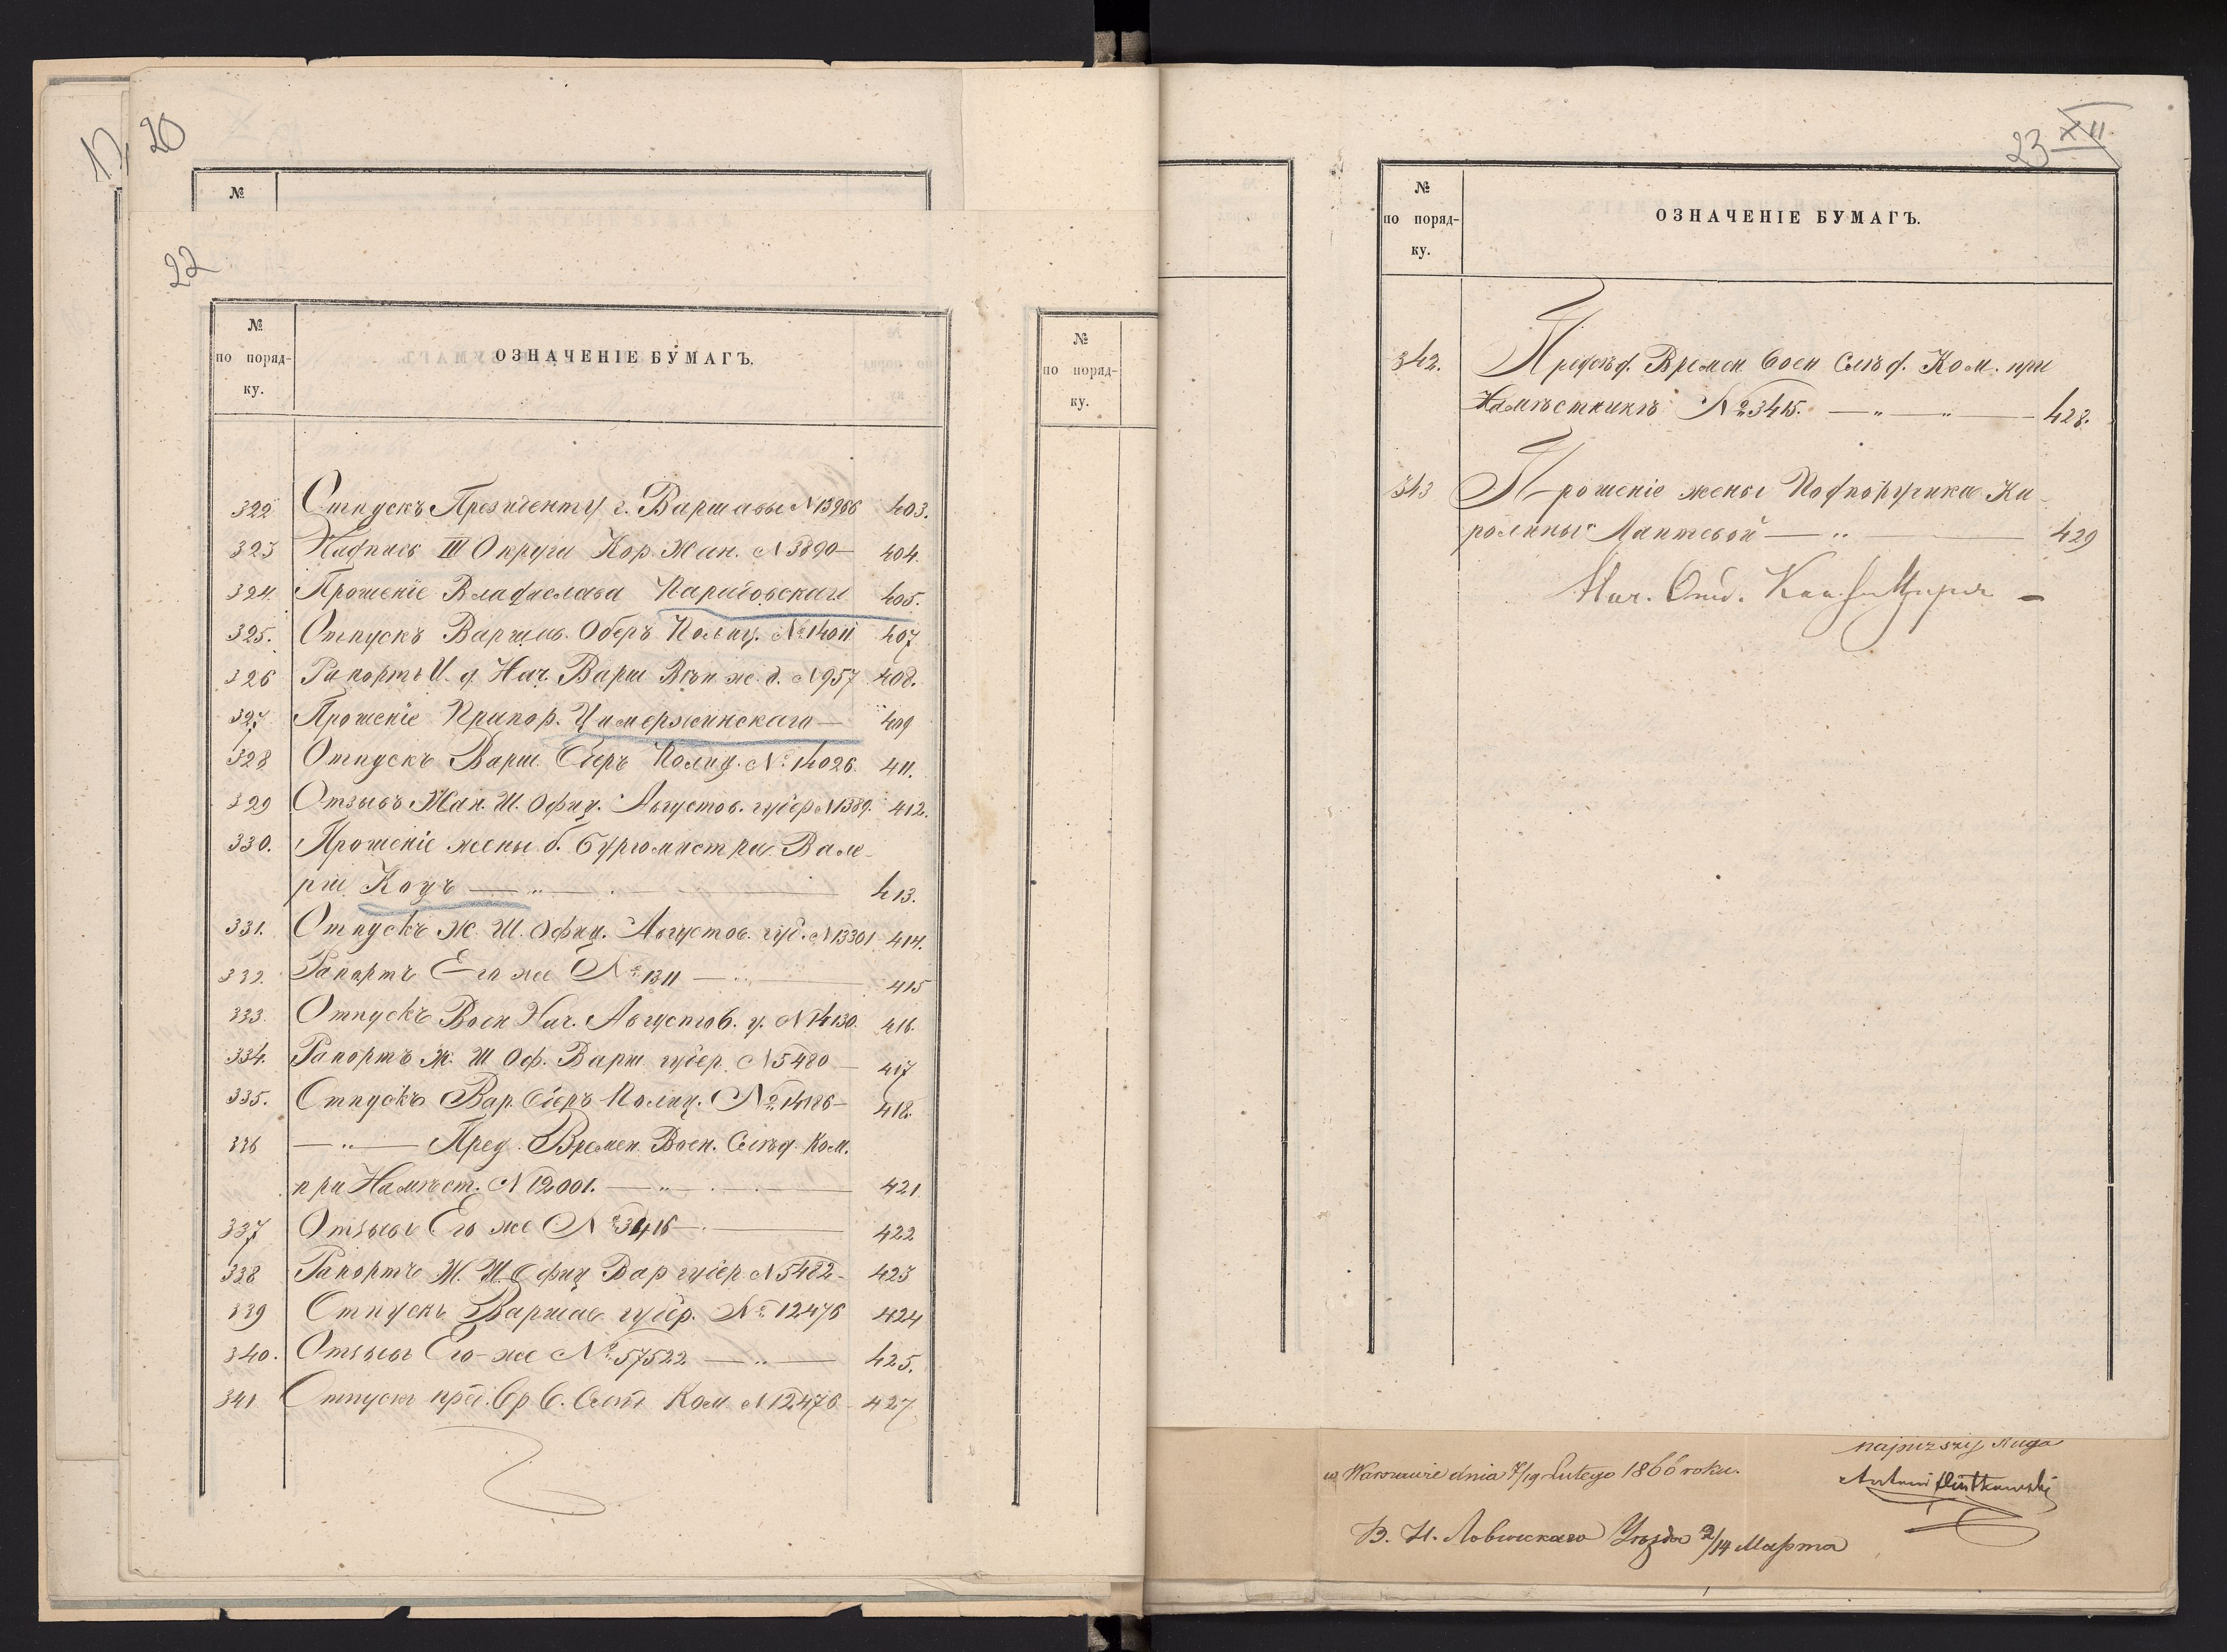 17
20
№
22
№
по поряд-
ку.
ОЗНАЧЕНІЕ БУМАГЪ.
322 Отпускъ Президенту г. Варшавы N 13966 403.
323 Надпись III Округа Кор. Жан. N 3890 — 404.
324. Прошеніе Владислава 405.
325. Отпускъ Варшав. Оберъ Полиц. № 14011 407
326 Рапортъ И. д. Нач. Варш Вѣн ж. д. N 957 408.
327 Прошеніе Прапор. — 409
328 Отпускъ Варш. Оберъ Полиц. № 14026. 411.
329 Отзывъ Жан. Ш. Офиц. Августов. губер N 1389. 412.
330. Прошеніе жены б. Бургомистра Вале-
ріи Коцъ — „ — 413.
331. Отпускъ Ж. Ш. Офиц. Августов. губ. N 13301 414.
332. Рапортъ Его же № 1311 — „ — 415
333. Отпускъ Воен Нач. Августов. у. N 14130. 416.
334. Рапортъ Ж. Ш Оф. Варш губер. N 5480 — 417
335. Отпускъ Вар. Оберъ Полиц. № 14186 — 418.
336 — „ — Пред. Времен. Воен. Слѣд. Ком.
при Намѣст. N 12001. — „ — 421
337 Отзывъ Его же № 3416 — 422
338 Рапортъ Ж. Ш. Офиц Вар губер N 5482 - 423
339 Отпускъ Варшав губер. № 12476 424
340. Отзывъ Его-же № 57522 — „ — 425.
341 Отпускъ Вр В. Ком N 12476 - 427
№
по поряд-
ку.
23 XII
№
по поряд-
ку.
ОЗНАЧЕНІЕ БУМАГЪ.
342. Предсѣд. Времен Воен Слѣд. Ком. при
Намѣстникѣ № 3415. — „ — „ — 428.
343 Прошеніе жены Подпоручика Ка-
ролины Лаптевой — „ — 429
Нач. Отд.
najniższy sługa
w Warszawie dnia 7/19 Lutego 1866 roku.
Antoni
В. Н. Ловичскаго Уѣзда 2/14 Марта